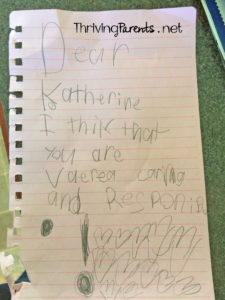 ThrivingParents.net
Dear
Katherine
I thik that
you are
Vaerea caring
and Responin